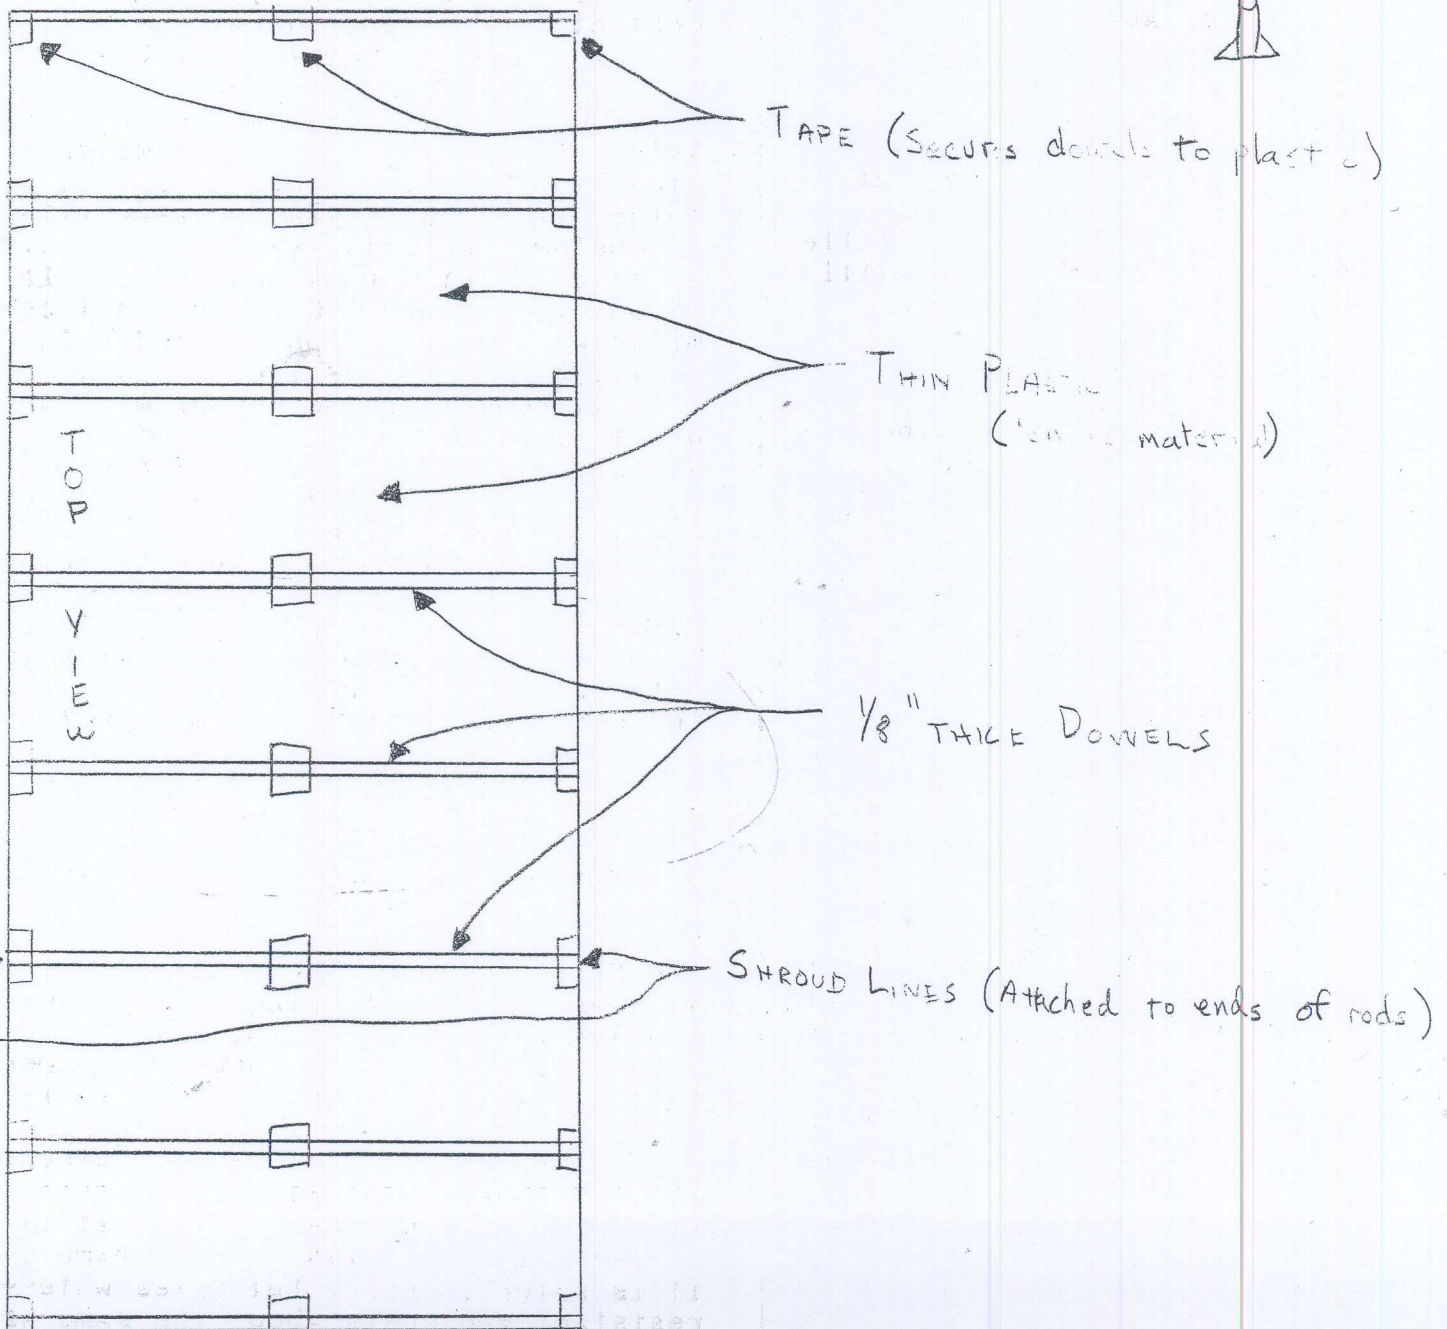 TAPE (Secures dowels to plastic)
THIN PLASTIC
material)
TOP VIEW
1/8" THICK DOWELS
SHROUD LINES (Attached to ends of rods)